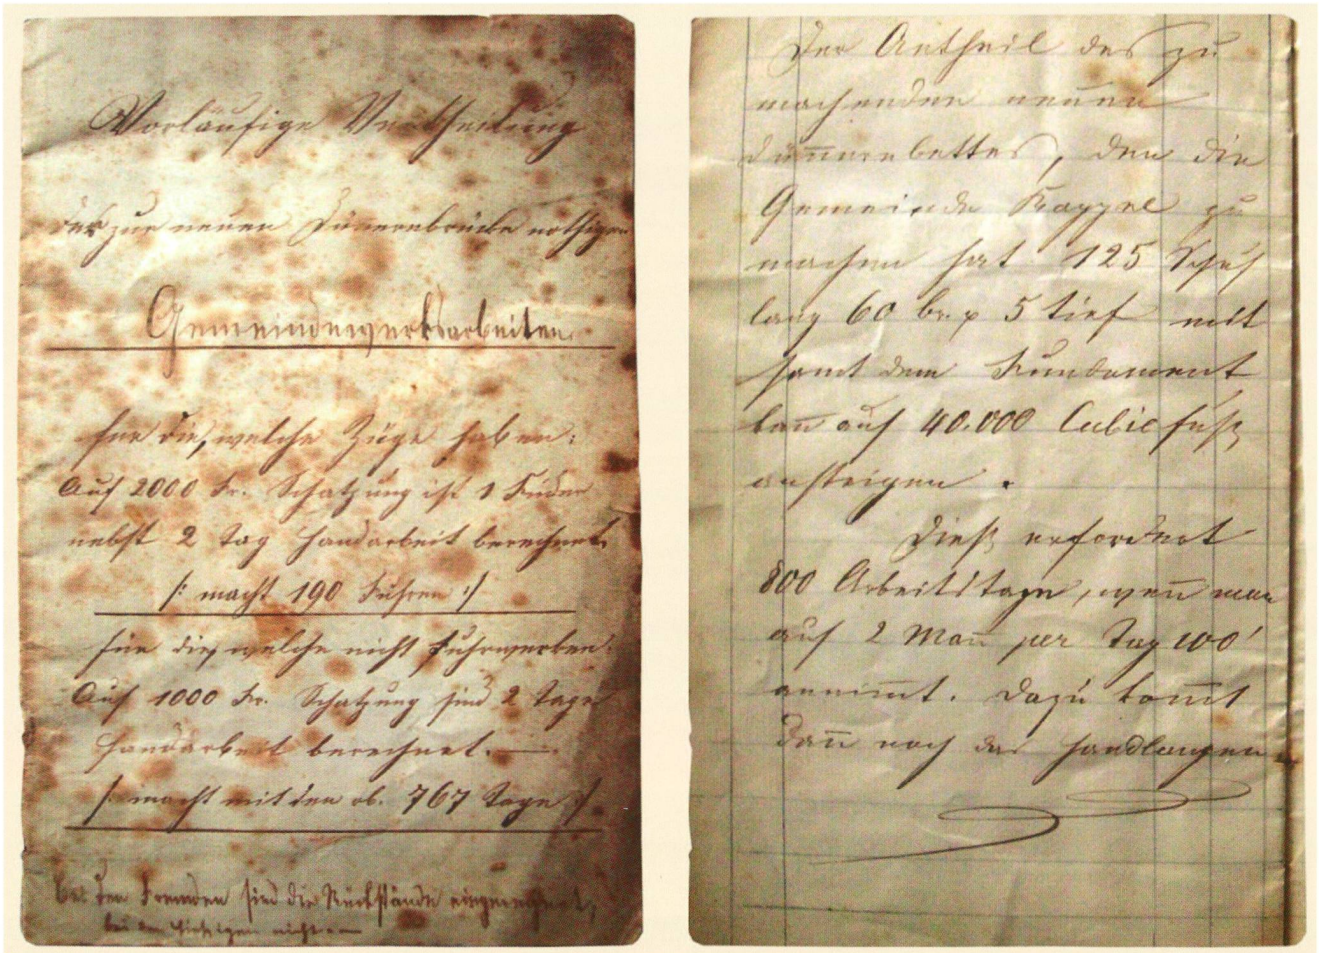 Vorläufige Vertheilung
der zur neuen Dünernbrücke nöthigen
Gemeindewerksarbeiten
für die, welche Züge haben:
Auf 2000 Fr. Schatzung ist 1 Fuder
nebst 2 Tag Handarbeit berechnet.
/: macht 190 Fuhren :/
für die, welche nicht fuhrwerken:
Auf 1000 Fr. Schatzung sind 2 Tage
Handarbeit berechnet. —
/: macht mit den ob. 767 Tage :/
bei den Fremden sind die Rückstände eingerechnet,
bei den hiesigen nicht. —
Der Antheil des zu
machenden neuen
Dün̅ernbettes, den die
Gemeinde Kappel zu
machen hat 125 Schuh
lang 60 br. & 5 tief mit
samt dem Fundament
kan̅ auf 40.000 Cubicfuß
ansteigen.
Dieß erfordert
800 Arbeitstage, wen̅ man
auf 2 Man̅ per Tag 100'
annim̅t. Dazu kom̅t
dan̅ noch das Handlangen.